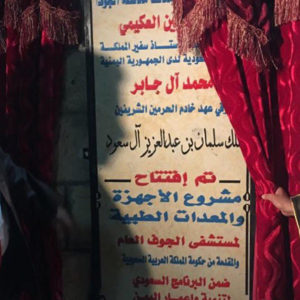 ين العكيمي
ستاذ سفير المملكة
عودية لدى الجمهورية اليمنية
محمد آل جابر
في عهد خادم الحرمين الشريفين
ملك سلمان بن عبدالعزيز آل سعود
تم إفتتاح
مشروع الأجهزة
والمعدات الطبية
لمستشفى الجوف العام
والمقدمة من حكومة المملكة العربية السعودية
ضمن البرنامج السعودي
لتنمية وإعمار اليمن